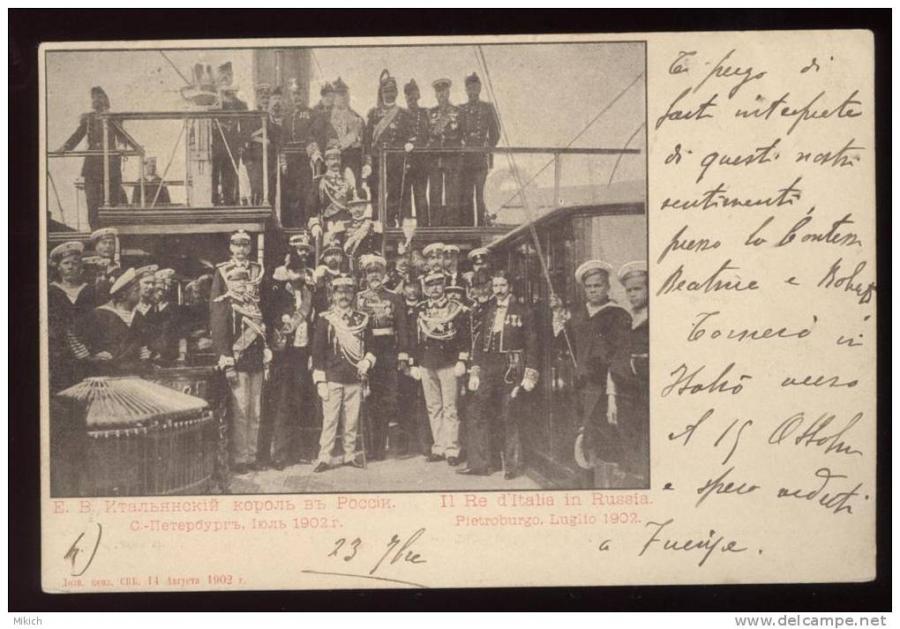 Ti prego di
farti interprete
di questi nostri
sentimenti,
presso la Contessa
Beatrice e
Tornerò in
Italia verso
il 15 Ottobre
e spero vederti
a Firenze.
Е. В. Итальянскій король въ Россіи.
С.-Петербургъ, Іюль 1902 г.
Il Re d'Italia in Russia.
Pietroburgo, Luglio 1902.
4)
23 7bre
Дозв. ценз. СПБ. 14 Августа 1902 г.
Mikich
www.delcampe.net